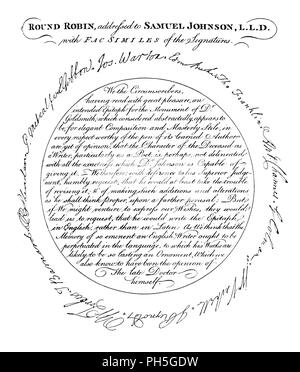 ROUND ROBIN, addressed to SAMUEL JOHNSON, L.L.D.
with FAC SIMILES of the Signatures.
Edw Gibbon, Jos. Warton
We the Circumscribers,
having read with great pleasure, an
intended Epitaph for the Monument of Dr
Goldsmith, which considered abstractedly appears to
be, for elegant Composition and Masterly Stile, in
every respect worthy of the pen of its Learned Author:
are yet of opinion, that the Character of the Deceased as
a Writer, particularly as a Poet, is, perhaps, not delineated
with all the exactness which Dr Johnson is Capable of
giving it. We therefore, with deference to his Superior Judg-
ment, humbly request, that he would at least take the trouble
of revising it; & of making such additions and alterations
as he shall think proper, upon a farther perusal: But
if We might venture to express our Wishes, they would
lead us to request, that he would write the Epitaph
in English, rather than in Latin: As We think that the
Memory of so eminent an English Writer ought to be
perpetuated in the language, to which his Works are
likely to be so lasting an Ornament, Which we
also know to have been the opinion of
The late Doctor
himself.
J Reynolds.
a
alamy
PH5GDW